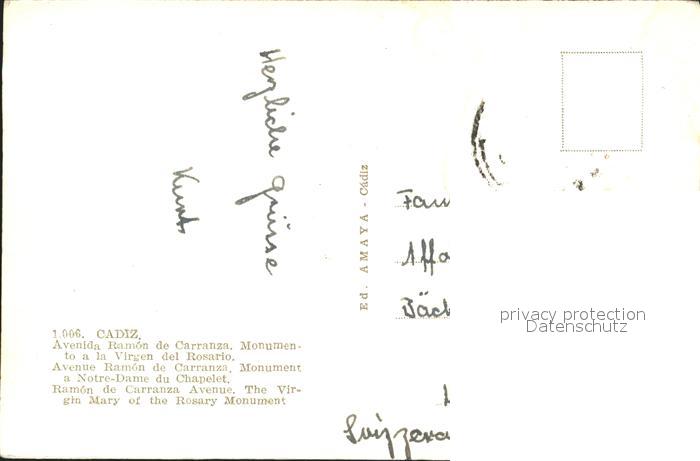 Herzliche Grüsse
Kurt
1.006. CADIZ.
Avenida Ramón de Carranza. Monumen-
to a la Virgen del Rosario.
Avenue Ramón de Carranza. Monument
a Notre-Dame du Chapelet.
Ramón de Carranza Avenue. The Vir-
gin Mary of the Rosary Monument
Ed. AMAYA - Cádiz
Fam
Affo
Bäck
Svizzera
privacy protection
Datenschutz